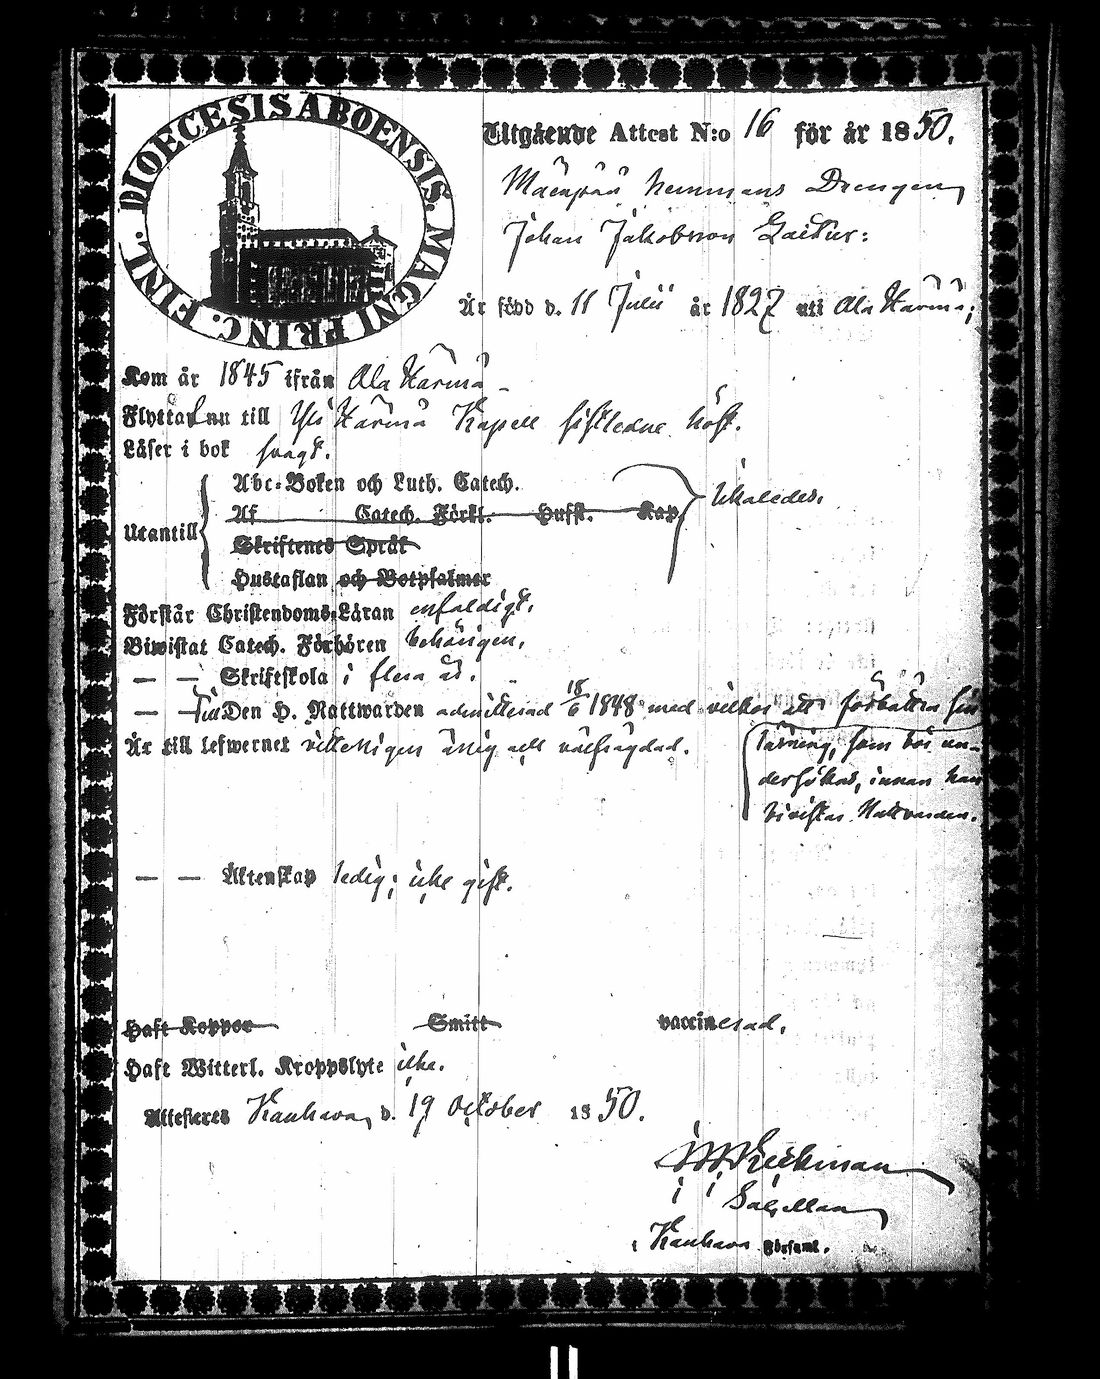 DIOECESIS ABOENSIS. MAGNI PRINC. FINL.
Utgående Attest N:o 16 för år 1850.
Mäenpää hemmans Drengen,
Johan Jakobsson
Är född d. 11 Julii år 1827 uti Ala Härmä;
Kom år 1845 ifrån Ala Härmä
Flyttar nu till Yli Härmä Kapell sistledne höst.
Läser i bok svagt.
Utantill
Abc-Boken och Luth. Catech.
Af Catech. Förkl. Hufst. Kap.
likaledes.
Skriftenes Språk
Hustaflan och Botpsalmer
Förstår Christendoms-Läran enfaldigt.
Biwistat Catech. Förhören behörigen.
— — Skriftskola i flera år.
— Till Den H. Nattwarden admitterad 18/6 1848 med vilkor att förbättra sin
Är till lefwernet ärlig och välfrägdad.
läsning, som bör un-
dersökas, innan han
bivistar Nattvarden.
— — Äktenskap ledig; icke gift.
Haft Koppor Smitt vaccinerad.
Haft Witterl. Kroppslyte icke.
Attesteres Kauhava, d. 19 October 1850.
i Kauhava Församl.